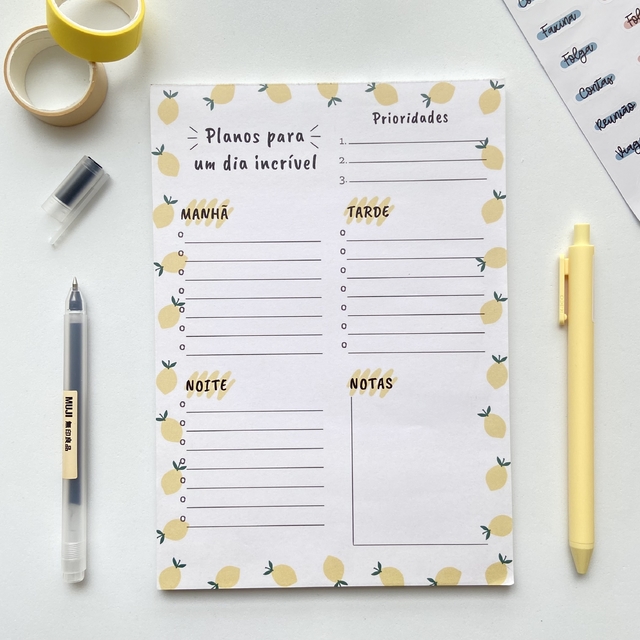 Planos para
um dia incrível
Prioridades
1.
2.
3.
MANHÃ
TARDE
NOITE
NOTAS
MUJI 無印良品
Faxina
Folga
Contas
Reunião